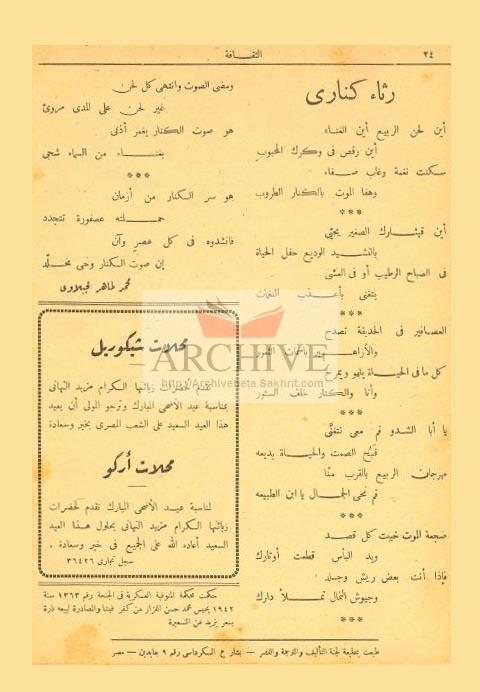 ٢٤
الثقافة
رثاء كنارى
أين لحن الربيع أين الغناء
أين رقص فى وكرك المحبوب
سكنت نغمة وغاب صفاء
وهفا الموت بالكنار الطروب
***
أين قيثارك الصغير يحيّي
بالنشيد الوديع حفل الحياة
فى الصباح الرطيب أو فى العشى
يتغنى بأعذب النغمات
***
العصافير فى الحديقة تصدح
والأزاهير باسمات الثغور
كل ما فى الحياة يلهو ويمرح
وأنا والكنار خلف الستور
***
يا أبا الشدو قم معى نتغنَّى
قبُح الصمت والحياة بديعه
مهرجان الربيع بالقرب منّا
قم نحى الجمال يا ابن الطبيعه
***
ضجعة الموت خيبت كل قصد
ويد اليأس قطعت أوتارك
فإذا أنت بعض ريش وجلد
وجيوش النمال تملأ دارك
***
ومضى الصوت وانتهى كل لحن
غير لحن على المدى مروىّ
هو صوت الكنار يغمر أذنى
بغناء من السماء شجى
***
هو سر الكنار من أزمان
حملته عصفورة تتجدد
فانشدوه فى كل عصر وآن
إن صوت الكنار وحى مخلّد
محمد طاهر الجبلاوى
محلات شيكوريل
تقدم لحضرات زبائنها الكرام مزيد التهانى
بمناسبة عيد الأضحى المبارك وترجو المولى أن يعيد
هذا العيد السعيد على الشعب المصرى بخير وسعادة
محلات أركو
لمناسبة عيد الأضحى المبارك تقدم لحضرات
زبائنها الكرام مزيد التهانى بحلول هذا العيد
السعيد أعاده الله على الجميع فى خير وسعادة .
سجل تجارى ٣٦٤٢٦
حكمت محكمة المنوفية العسكرية فى الجنحة رقم ١٣٦٣ سنة
١٩٤٢ بحبس محمد حسن القزاز من كفر والمصادرة لبيعه ذرة
بسعر يزيد عن التسعيرة
طبعت بمطبعة لجنة التأليف والترجمة والنشر — بشارع السكرداسى رقم ٩ بعابدين — مصر
ARCHIVE
http://Archivebeta.Sakhrit.com